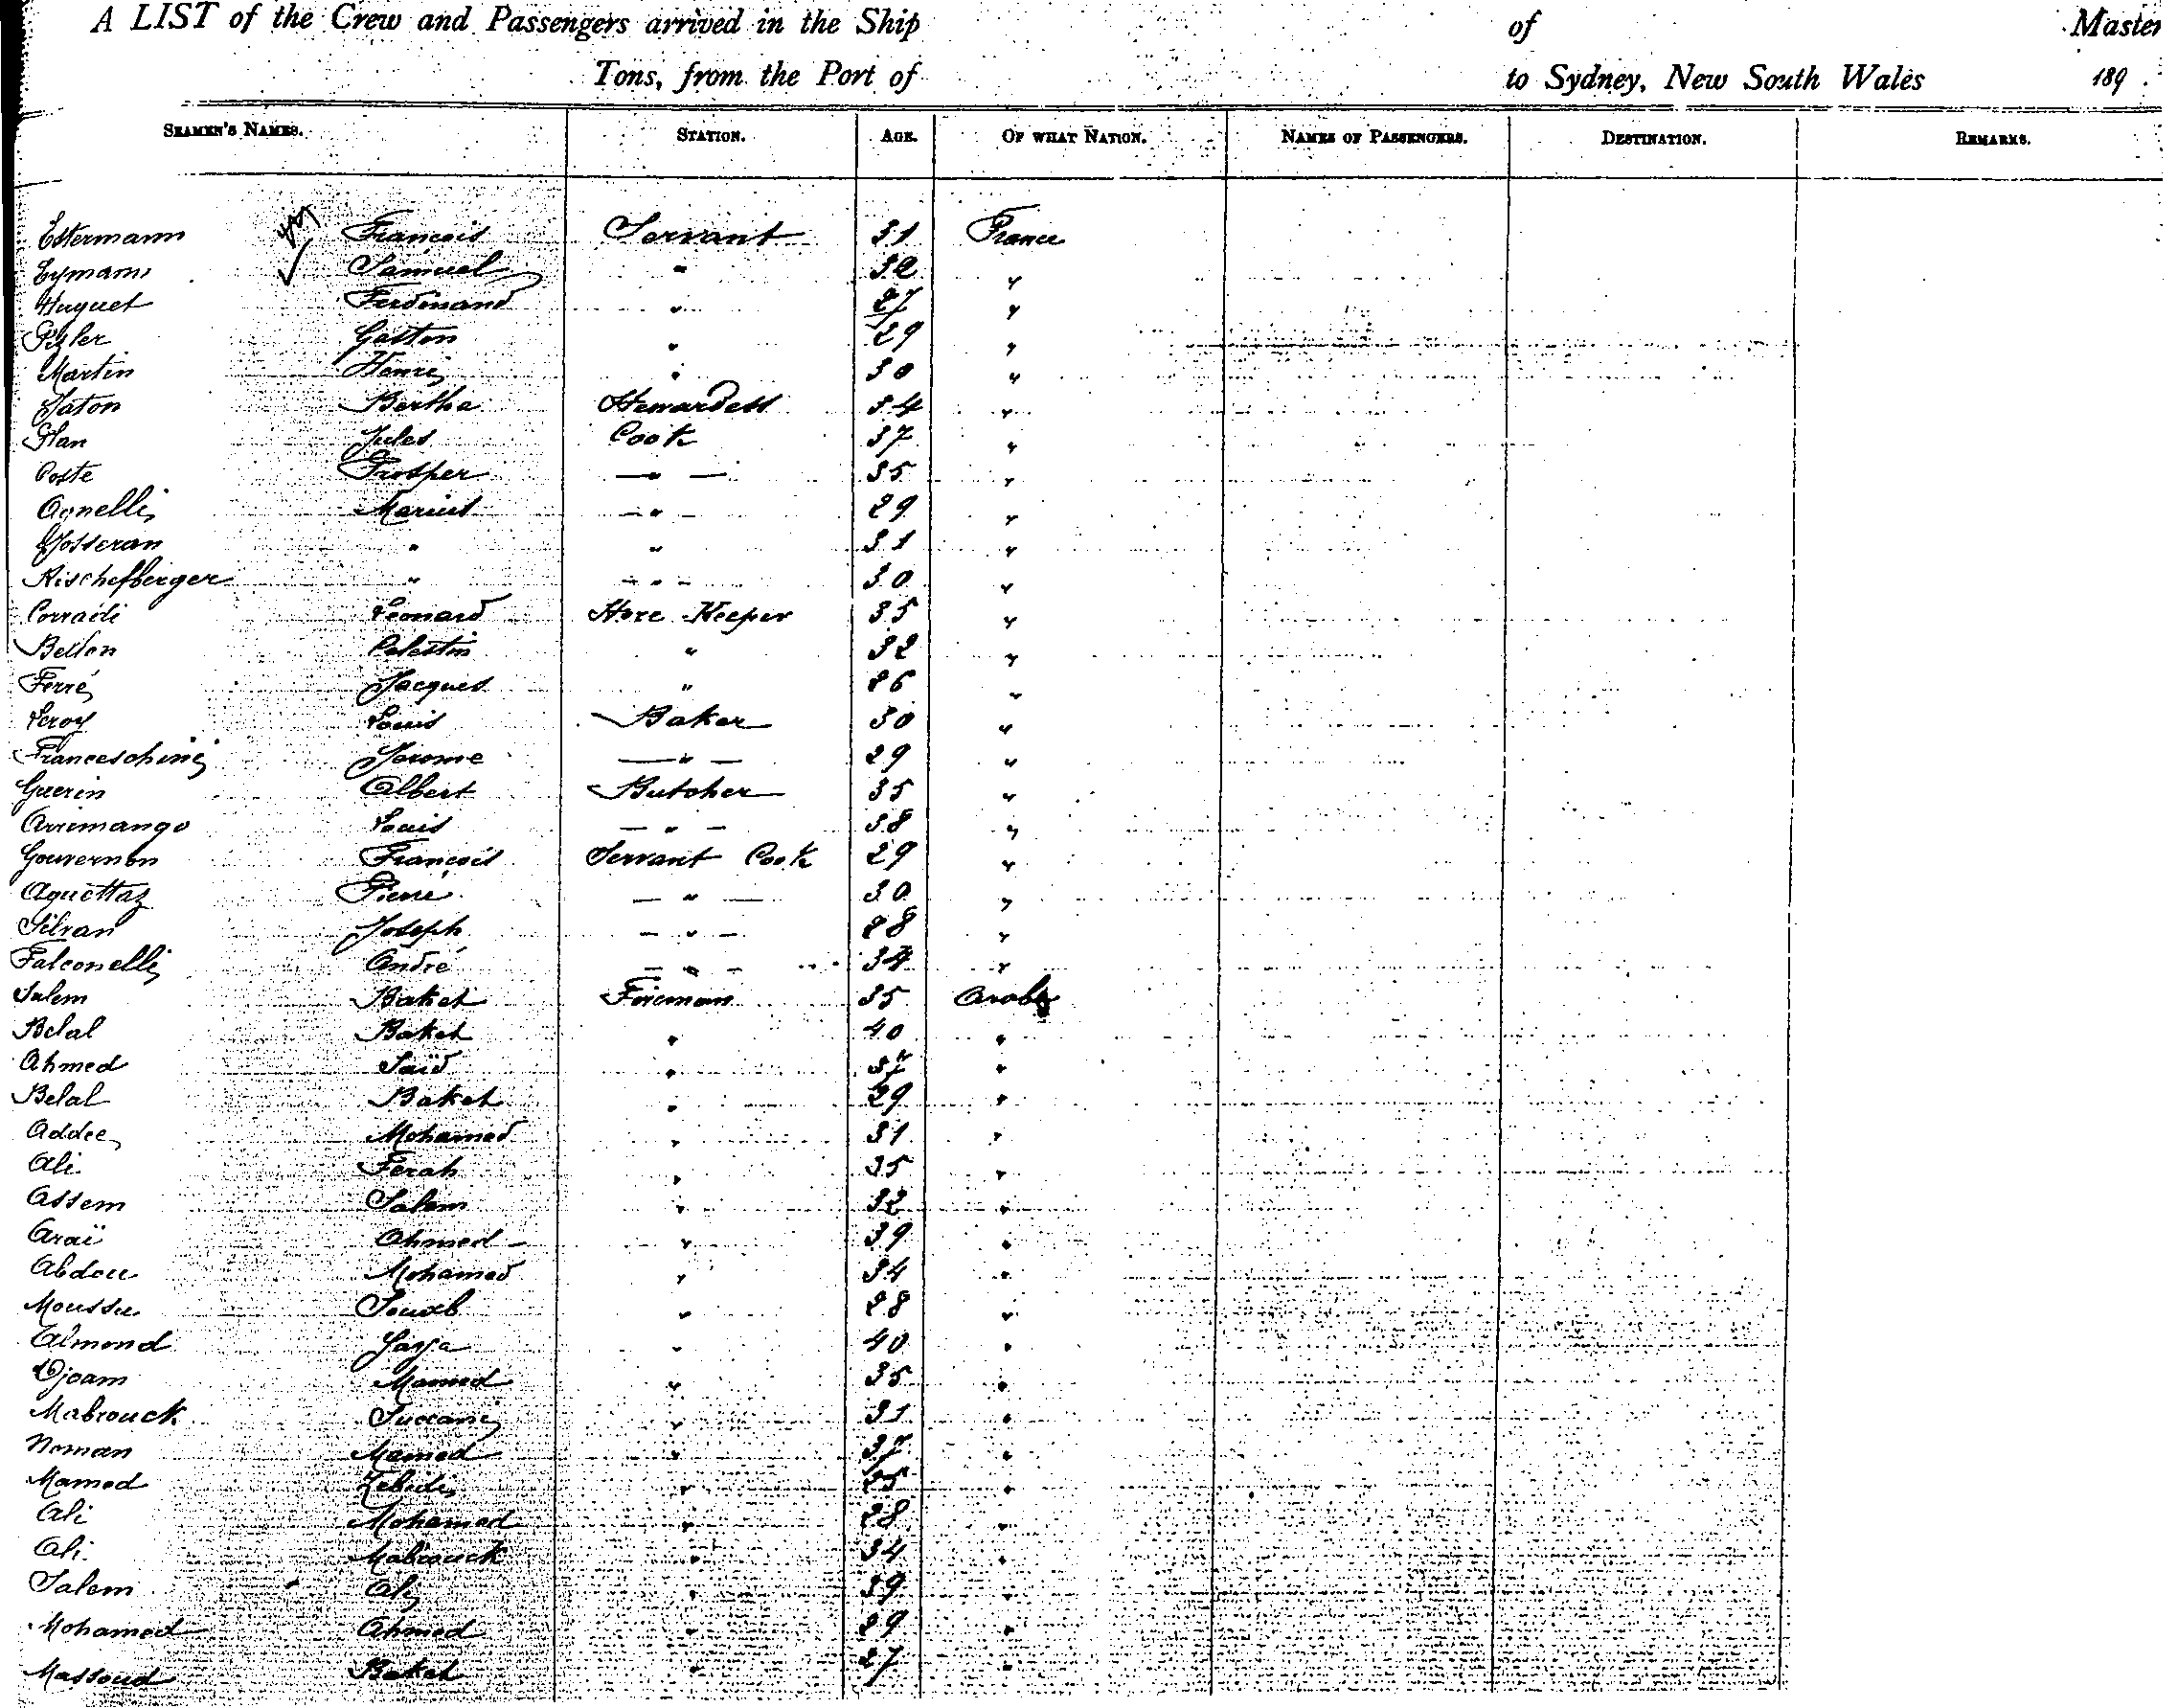 A LIST of the Crew and Passengers arrived in the Ship of Master
Tons, from the Port of to Sydney, New South Wales 189 .
SEAMEN'S NAMES. STATION. AGE. OF WHAT NATION. NAMES OF PASSENGERS. DESTINATION. REMARKS.
Estermann François Servant 31 France
Eymann Samuel " 32 "
Huguet Ferdinand " 27 "
Gaston " 29 "
Martin Henri " 30 "
Jaton Bertha Stewardess 34 "
Plan Jules Cook 37 "
Coste Prosper — " — 35 "
Agnelli Marius — " — 29 "
Josseran " " 31 "
Rischefberger " — " — 30 "
Corradi Leonard Store Keeper 35 "
Bellon Celestin " 32 "
Ferré Jacques " 26 "
Leroy Louis Baker 30 "
Franceschini Jerome — " — 29 "
Guerin Albert Butcher 35 "
Arrimango Louis — " — 38 "
Gouvernon François Servant Cook 29 "
Aquettaz Pierre — " — 30 "
Silvan Joseph — " — 28 "
Falconelli André — " — 34 "
Salem Baket Fireman 35
Belal Baket " 40 "
Ahmed Saïd " 37 "
Belal Baket " 29 "
Addee Mohamed " 31 "
Ali Ferah " 35 "
Assem Salem " 32 "
Araï Ahmed " 39 "
Abdou Mohamed " 34 "
Moussa " 28 "
Almond " 40 "
Djoam Mamed " 35 "
Mabrouck " 31 "
Noman Mamed " 37 "
Mamed Zebidi " 25 "
Ali Mohamed " 28 "
Ali Mabrouck " 34 "
Salem Ali " 39 "
Mohamed Ahmed " 29 "
Massoud Baket " 27 "